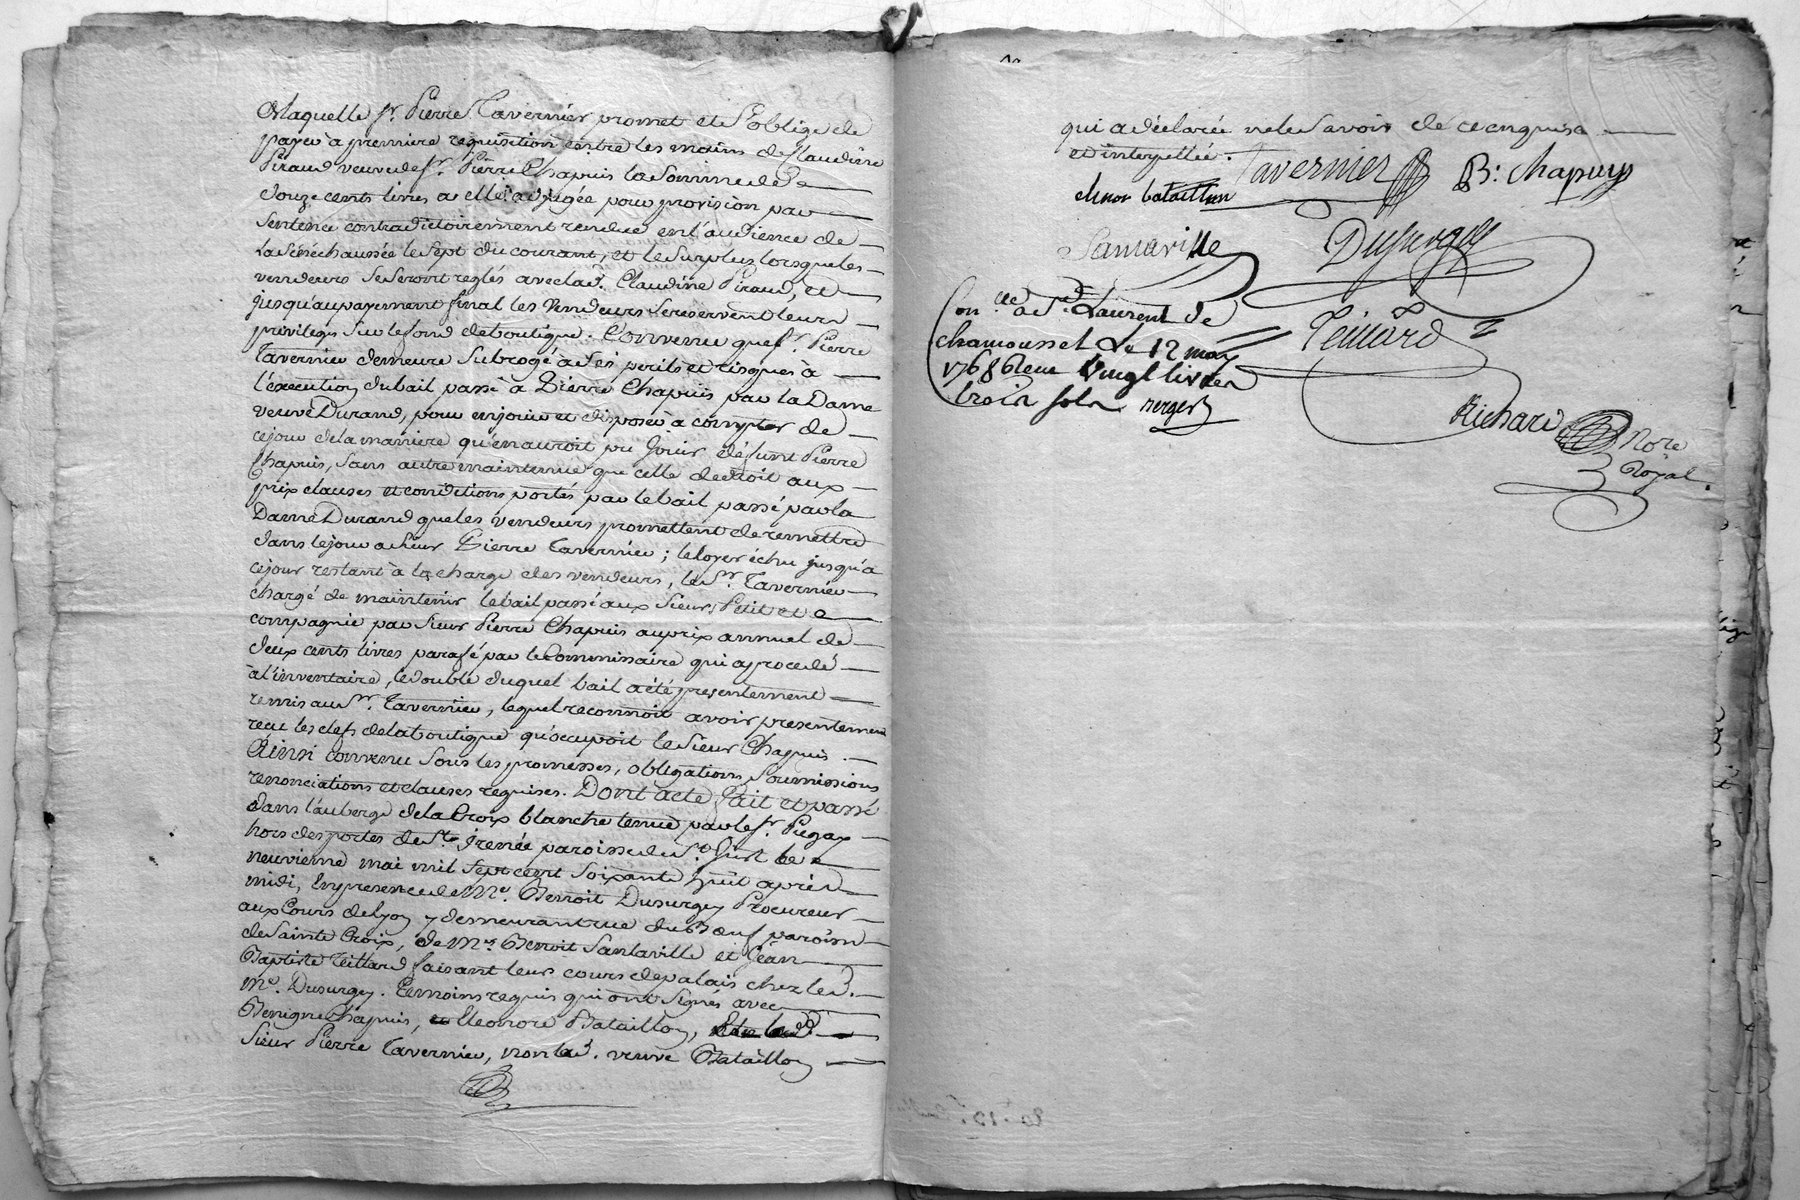 Laquelle sr. Pierre Tavernier promet et s'oblige de
payer à premiere requisition entre les mains de Claudine
Piraud veuve de sr. Pierre Chapuis la somme de
douze cents livres a elle adjugée pour provision par
sentence contradictoirement rendue en l'audience de
la Sénéchaussée le sept du courant, et le surplus lorsque les
vendeurs se seront reglés avec lad. Claudine Piraud, et
jusqu'au payement final les vendeurs se reservent leurs
privileges sur le fond de boutique. Convenu que sr. Pierre
Tavernier demeure subrogé à ses perils et risques à
l'execution du bail passé à Pierre Chapuis par la Dame
veuve Durand, pour en jouir et disposer à compter de
ce jour de la maniere qu'en auroit pu jouir défunt Pierre
Chapuis, sans autre maintenue que celle de droit aux
prix clauses et conditions portés par le bail passé par la
Dame Durand que les vendeurs promettent de remettre
dans le jour a sieur Pierre Tavernier ; le loyer échu jusqu'a
ce jour restant à la charge des vendeurs, le Sr. Tavernier
chargé de maintenir le bail passé aux sieurs Petit et
compagnie par sieur Pierre Chapuis au prix annuel de
deux cents livres parafé par le Commissaire qui a procedé
à l'inventaire, le double duquel bail a été presentement
remis au Sr. Tavernier, lequel reconnoit avoir presentement
recu les clefs de la boutique qu'occupoit le sieur Chapuis.
Ainsi convenu sous les promesses, obligations, soumissions
renonciations et clauses requises. Dont acte fait et passé
dans l'auberge de la Croix blanche tenue par le sr. Pegax
hors des portes de St. Irenée paroisse de St. Just le
neuvieme mai mil sept cent soixante huit après
midi, En presence de Me. Benoit Dusurgey Procureur
aux Cours de Lyon y demeurant rue du Boeuf paroisse
de Sainte Croix, de Mrs. Benoit Santaville et Jean
Baptiste Teillard faisant leurs cours de palais chez led.
Me. Dusurgey. Temoins requis qui ont signés avec
Benigne Chapuis, Eleonore Bataillon,
Sieur Pierre Tavernier, non lad. veuve Bataillon
qui a déclarée ne le savoir de ce enquise
et interpellée. Tavernier B: Chapuys
elinor bataillion
Santaville Dusurgey
Con. lle a St. Laurent de
chamousset Le 12 may Teillard
1768 Receu vingt livres
trois sols Berger
Richard Nore
Royal.